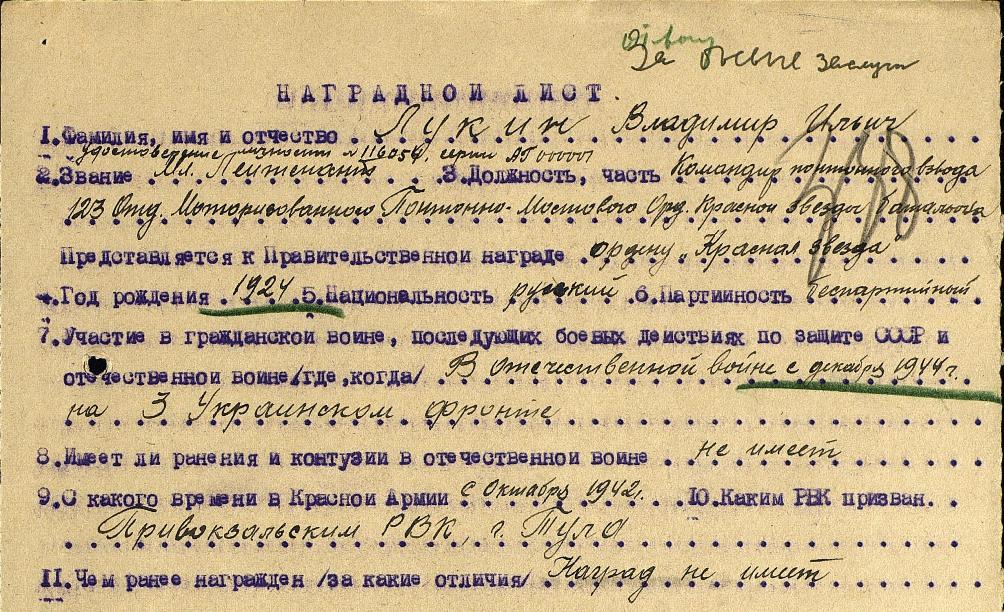 За боевые заслуги
НАГРАДНОЙ ЛИСТ.
1.Фамилия, имя и отчество Лукин Владимир Ильич
удостоверение личности № 116056, серии АГ 00001
2.Звание Мл. Лейтенант 3.Должность, часть Командир понтонного взвода
123 Отд. Моторизованного Понтонно-Мостового Орд. Красной Звезды Батальона
Представляется к Правительственной награде ордену "Красная звезда"
4.Год рождения 1924 5.Национальность русский 6.Партийность беспартийный
7.Участие в гражданской войне, последующих боевых действиях по защите СССР и
отечественной войне/где,когда/ В отечественной войне с декабря 1944 г.
на 3 Украинском фронте
8.Имеет ли ранения и контузии в отечественной войне не имеет
9.С какого времени в Красной Армии с Октября 1942г. 10.Каким РВК призван.
Привокзальским РВК, г. Тула
11.Чем ранее награжден /за какие отличия/ Наград не имеет